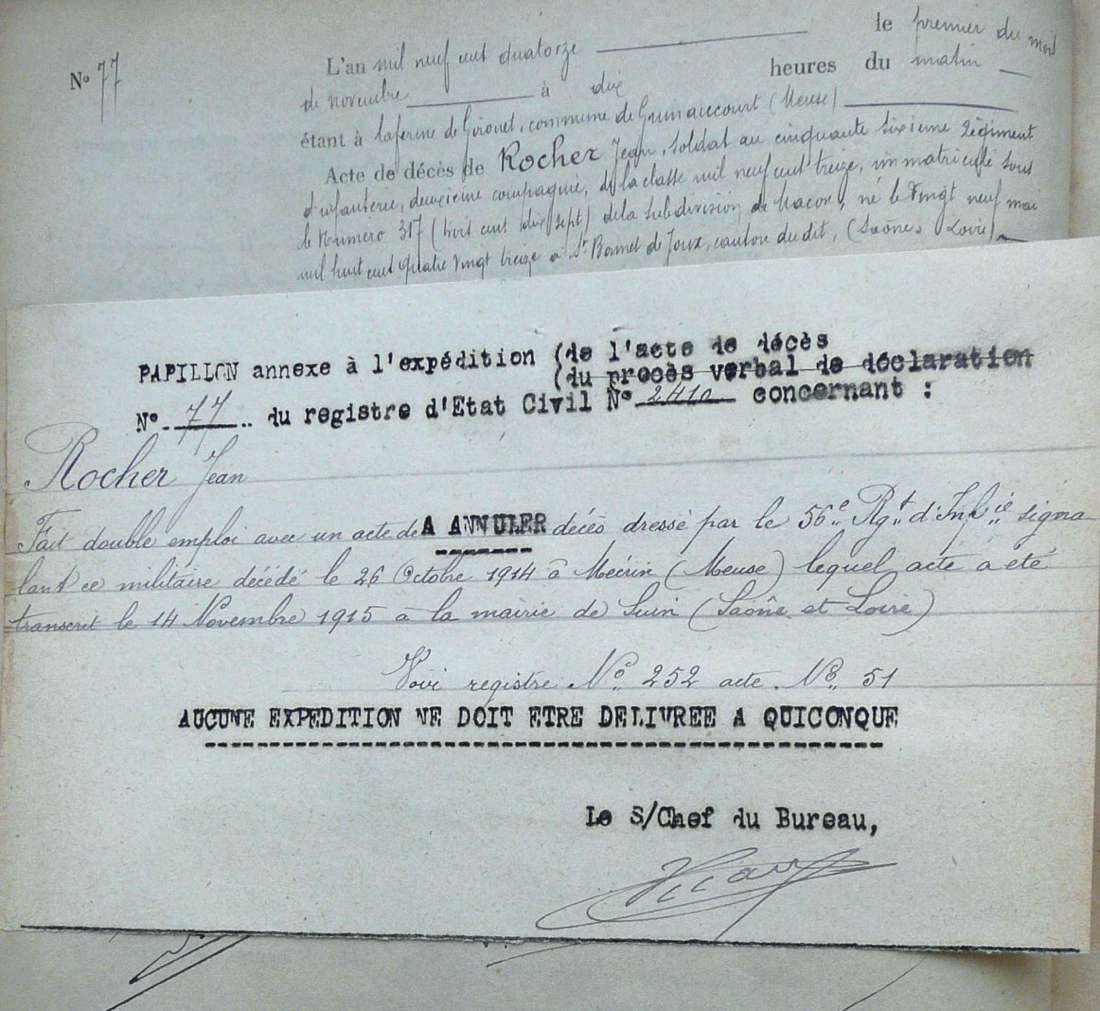 N° 77
L'an mil neuf cent quatorze le premier du mois
de novembre à dix heures du matin
étant à la ferme de Gironet, commune de (Meuse)
Acte de décès de Rocher Jean, soldat au cinquante sixième Régiment
d'infanterie, deuxième compagnie, de la classe mil neuf cent treize, immatriculé sous
le Numero 317 (trois cent dix sept) de la subdivision de Macon, né le Vingt neuf mai
mil huit cent quatre vingt treize à St Bonnet de Joux, canton du dit, (Saône & Loire)
PAPILLON annexe à l'expédition (de l'acte de décès
(du procès verbal de déclaration
N° 77 du registre d'Etat Civil N° 2410 concernant :
Rocher Jean
Fait double emploi avec un acte de A ANNULER décès dressé par le 56e Rgt d'Infie signa
lant ce militaire décédé le 26 Octobre 1914 à Mécrin (Meuse) lequel acte a été
transcrit le 14 Novembre 1915 à la mairie de Suin (Saône et Loire)
Voir registre No 252 acte No 51
AUCUNE EXPEDITION NE DOIT ETRE DELIVREE A QUICONQUE
Le S/Chef du Bureau,